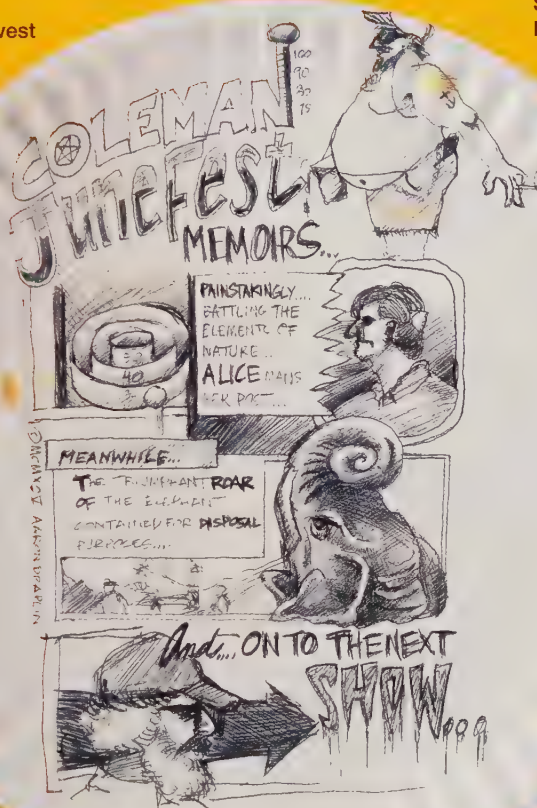 vest
S
COLEMAN
100
90
80
75
JuneFest
MEMOIRS...
PAINSTAKINGLY....
BATTLING THE
ELEMENTS OF
NATURE..
ALICE MANS
HER POST....
40
MEANWHILE...
THE TRIUMPHANT ROAR
OF THE ELEPHANT
CONTAINED FOR DISPOSAL
PURPOSES....
And.... ON TO THE NEXT
SHOW...